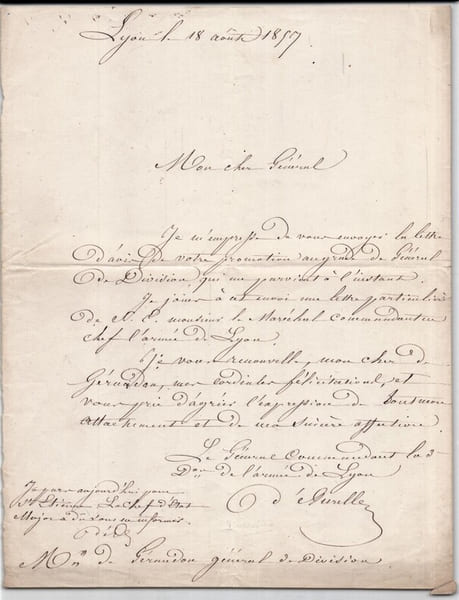 Lyon le 18 août 1857
Mon cher Général
Je m'empresse de vous envoyer la lettre
d'avis de votre promotion au grade de Général
de Division, qui me parvient à l'instant.
Je joins à cet envoi une lettre particulière
de S. E. monsieur le Maréchal commandant en
chef l'armée de Lyon.
Je vous renouvelle, mon cher de
Géraudon, mes cordiales félicitations, et
vous prie d'agréer l'expression de tout mon
attachement et de ma sincère affection.
Le Général Commandant la 3e
Don de l'armée de Lyon
d'Aurelle
Je pars aujourd'hui pour
St Etienne Le chef d'état
Major a dû vous en informer.
Mr de Géraudon général de Division